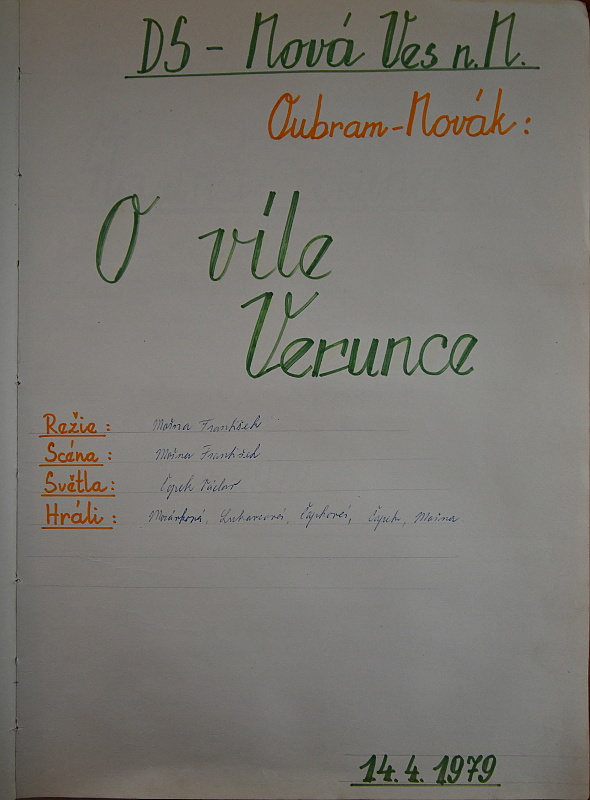 DS - Nová Ves n. M.
Oubram-Novák:
O víle
Verunce
Režie: Mošna František
Scéna: Mošna František
Světla: Čapek Václav
Hráli: Čapek, Mošna
14. 4. 1979